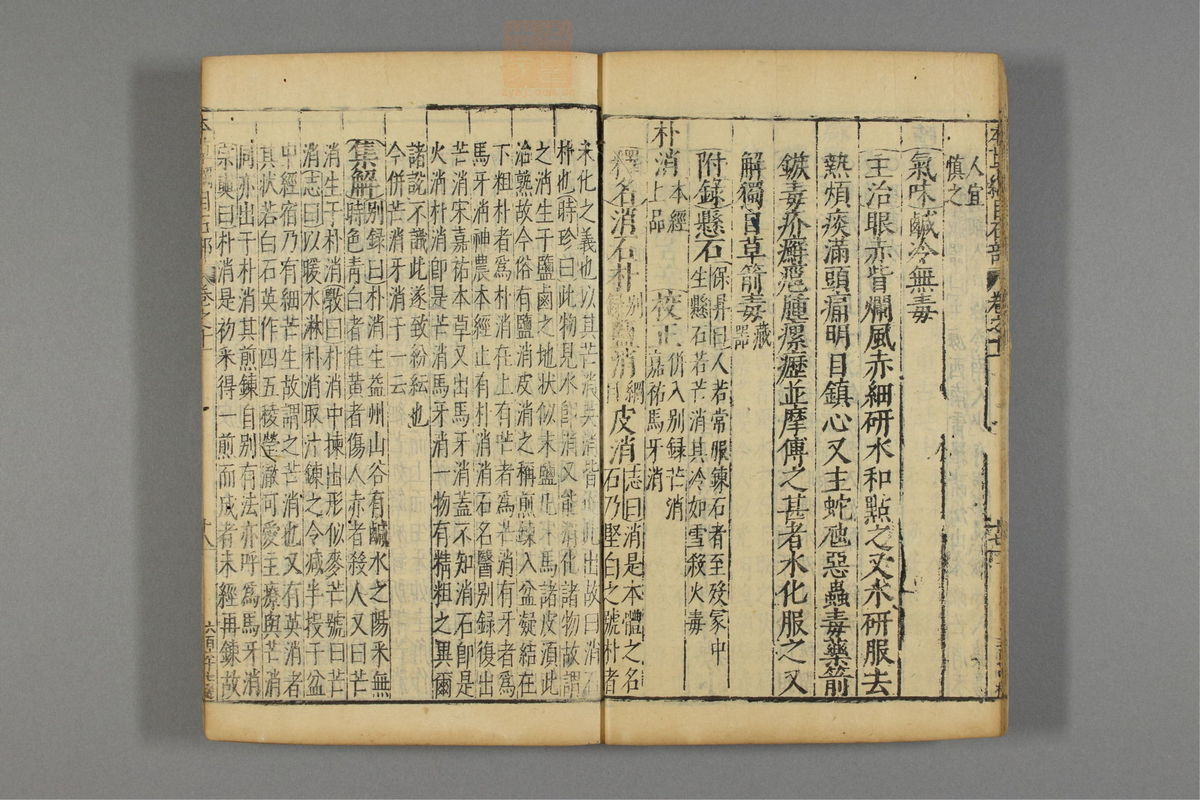 人宜
慎之
氣味鹹冷無毒
主治眼赤眥爛風赤細研水和點之又水研服去
熱煩痰滿頭痛明目鎮心又主蛇虺惡蟲毒藥箭
鏃毒疥癬腫瘰癧並摩傅之甚者水化服之又
解獨自草箭毒藏器
附錄懸石保昇曰人若常服鍊石者至歿冢中
生懸石若芒消其冷如雪殺火毒
朴消本經上品
校正併入別錄芒消
嘉祐馬牙消
釋名消石朴別錄鹽消綱目皮消志曰消是本體之名
石乃堅白之號朴者
未化之義也以其芒消英消皆此出故曰消石
朴也時珍曰此物見水即消又能消化諸物故謂
之消生于鹽鹵之地狀似末鹽牛馬諸皮須此
治熟故今俗有鹽消皮消之稱煎鍊入盆凝結在
下粗朴者為朴消在上有芒者為芒消有牙者為
馬牙消神農本經止有朴消消石名醫別錄復出
芒消宋嘉祐本草又出馬牙消蓋不知消石即是
火消朴消即是芒消馬牙消一物有精粗之異爾
諸說不識此遂致紛紜也
今併芒消牙消于一云
集解別錄曰朴消生益州山谷有鹹水之陽采無
時色青白者佳黃者傷人赤者殺人又曰芒
消生于朴消斅曰朴消中揀出形似麥芒號曰芒
消志曰以暖水淋朴消取汁鍊之令減半投于盆
中經宿乃有細芒生故謂之芒消也又有英消者
其狀若白石英作四五稜瑩澈可愛主療與芒消
同亦出于朴消其煎鍊自別有法亦呼為馬牙消
宗奭曰朴消是初采得一煎而成者未經再鍊故